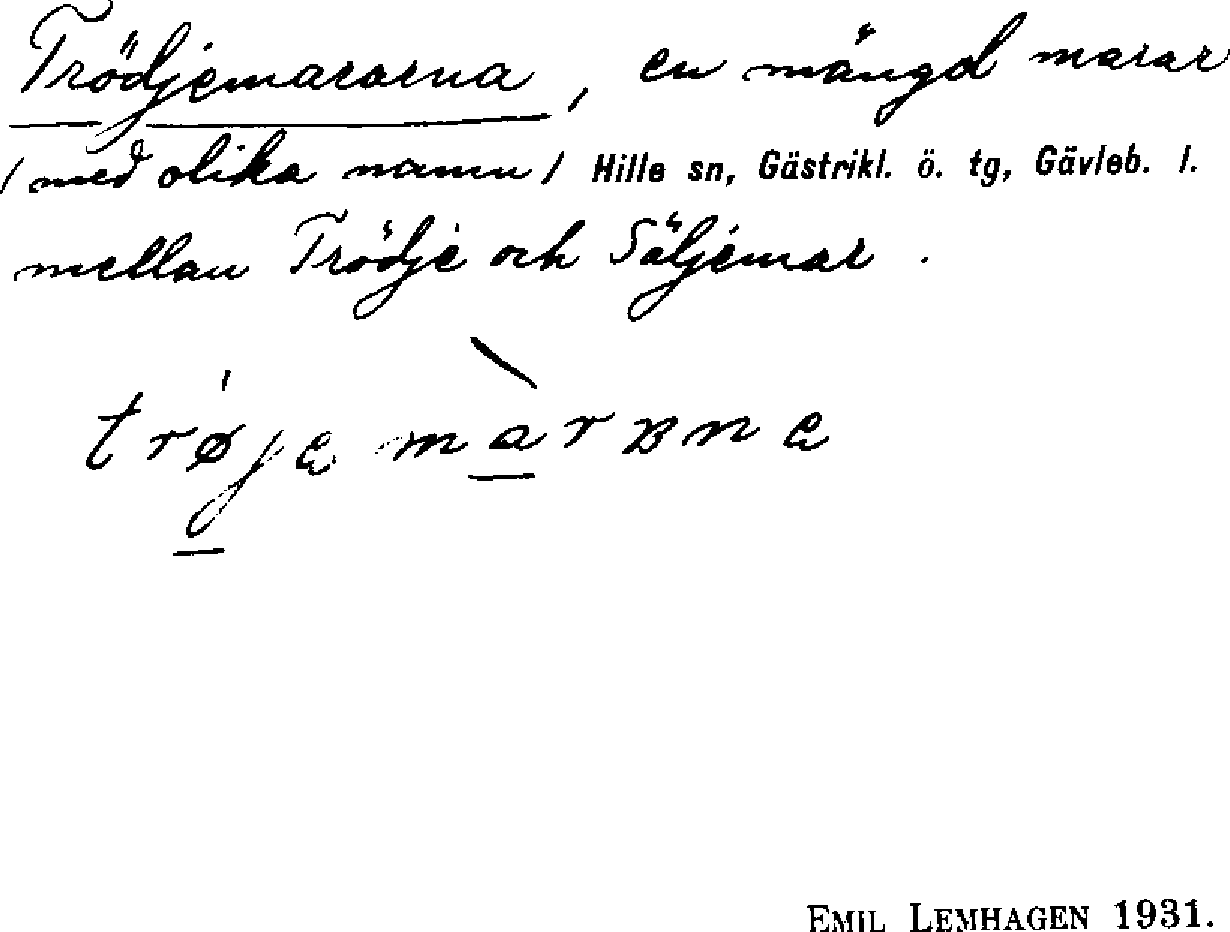 Trödjemararna, en mängd marar
/med olika namn/ Hille sn, Gästrikl. ö. tg, Gävleb. l.
mellan Trödje och Säljemar.
EMIL LEMHAGEN 1931.